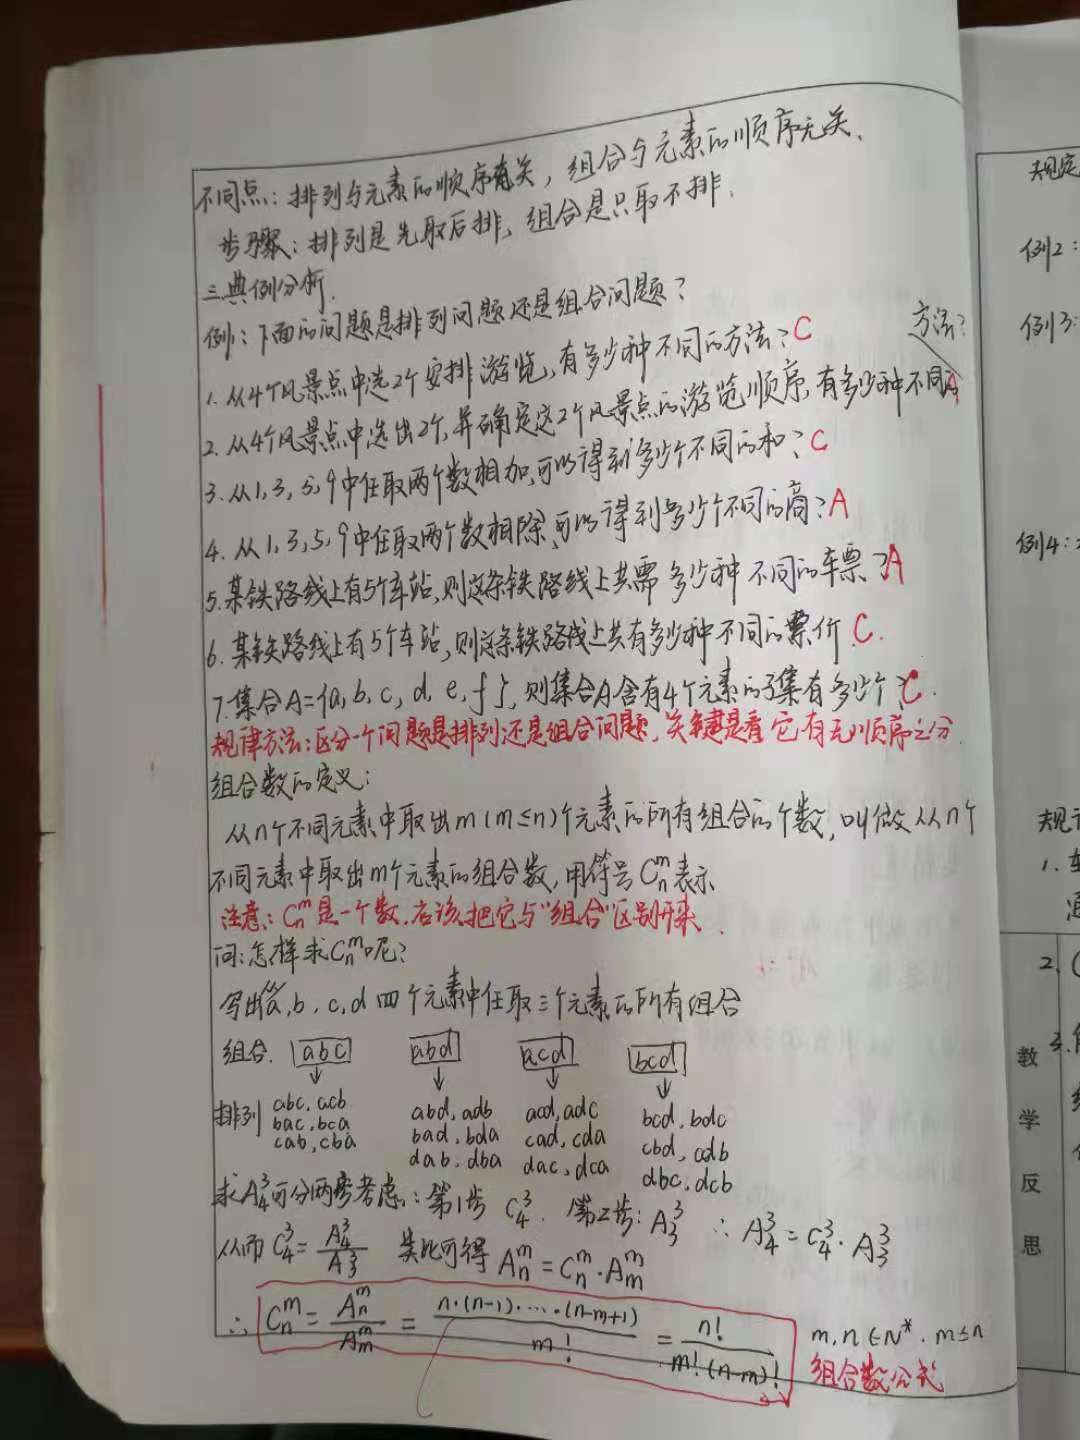 不同点:排列与元素的顺序有关,组合与元素的顺序无关.
步骤:排列是先取后排,组合是只取不排.
三.典例分析.
例1:下面的问题是排列问题还是组合问题?
1.从4个风景点中选2个安排游览,有多少种不同的方法?C
2.从4个风景点中选出2个,并确定这2个风景点的游览顺序,有多少种不同的方法?A
3.从1,3,5,9中任取两个数相加,可以得到多少个不同的和?C
4.从1,3,5,9中任取两个数相除,可以得到多少个不同的商?A
5.某铁路线上有5个车站,则这条铁路线上共需多少种不同的车票?A
6.某铁路线上有5个车站,则这条铁路线上共有多少种不同的票价 C.
7.集合A={a,b,c,d,e,f},则集合A含有4个元素的子集有多少个?C.
规律方法:区分一个问题是排列还是组合问题,关键是看它有无顺序之分.
组合数的定义:
从n个不同元素中取出m(m≤n)个元素的所有组合的个数,叫做从n个
不同元素中取出m个元素的组合数,用符号Cₙᵐ表示
注意:Cₙᵐ是一个数.应该把它与"组合"区别开来.
问:怎样求Cₙᵐ呢?
写出从a,b,c,d四个元素中任取三个元素的所有组合
组合. abc abd acd bcd
↓ ↓ ↓ ↓
排列 abc,acb abd,adb acd,adc bcd,bdc
bac,bca bad,bda cad,cda cbd,cdb
cab,cba dab,dba dac,dca dbc,dcb
求A₄³可分两步考虑:第1步 C₄³. 第2步:A₃³ ∴ A₄³=C₄³·A₃³
从而C₄³=A₄³/A₃³ 类比可得 Aₙᵐ=Cₙᵐ·Aₘᵐ
∴ Cₙᵐ=Aₙᵐ/Aₘᵐ=n·(n-1)·…·(n-m+1)/m!=n!/m!·(n-m)! m,n∈N*,m≤n
组合数公式
规定
例2:
例3:
例4:
规
1.
2.
3.
教
学
反
思